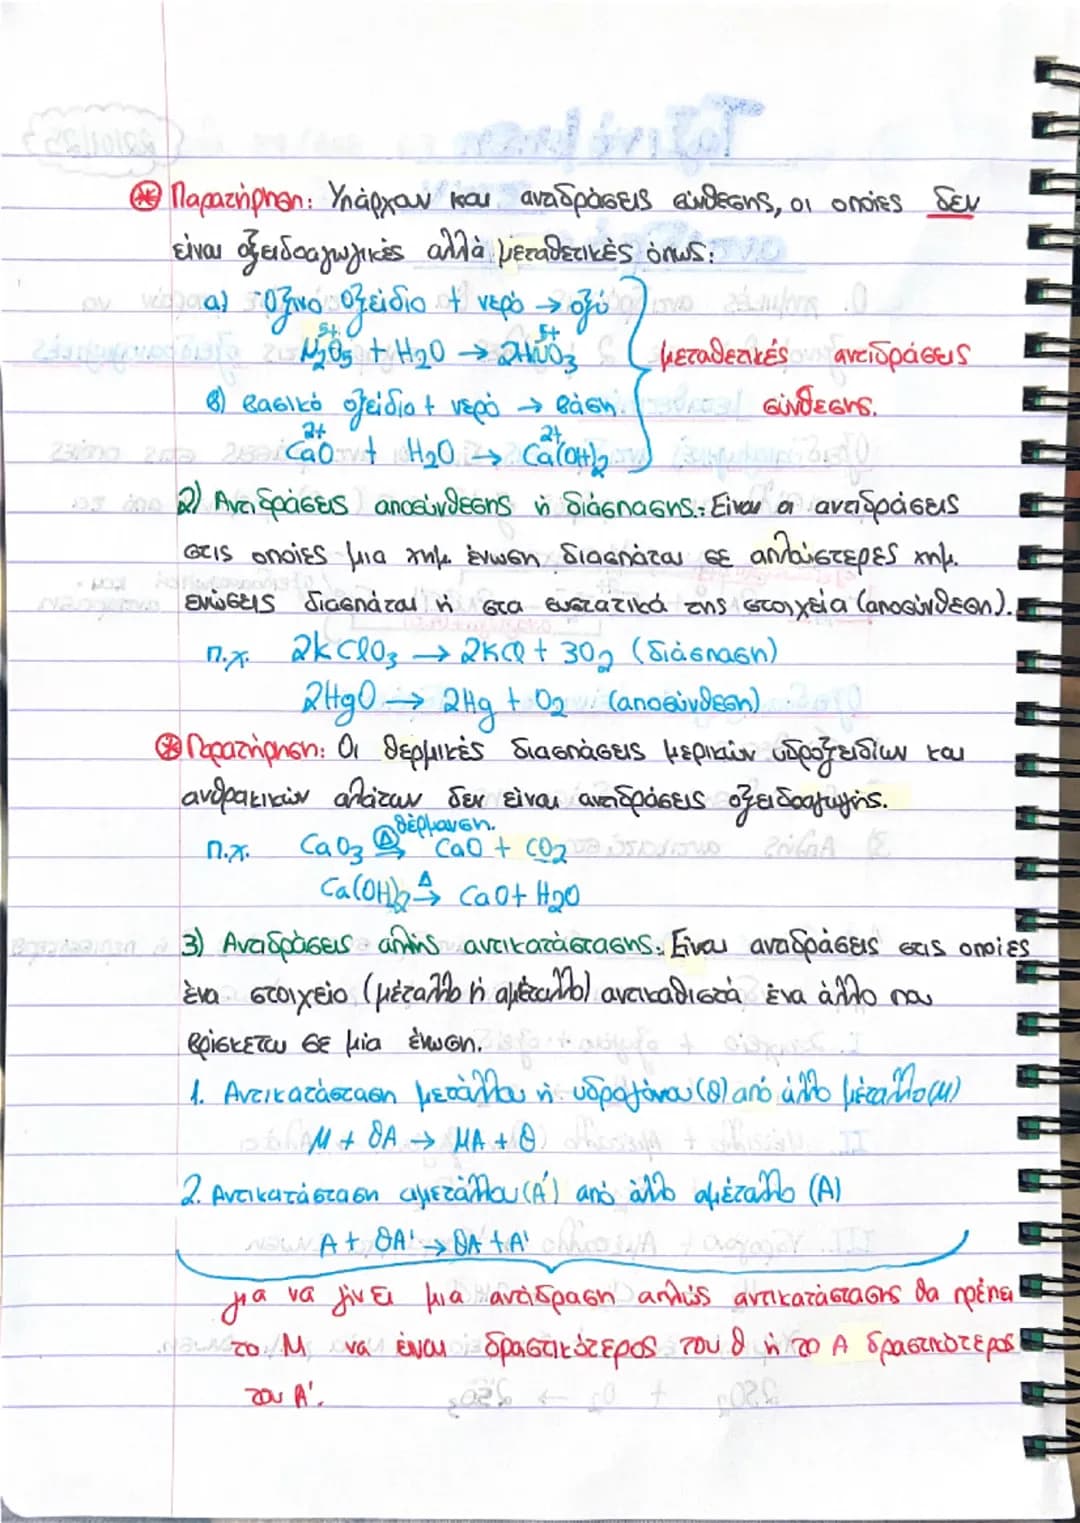 ⊛ Παρατήρηση: Υπάρχουν και αντιδράσεις σύνθεσης, οι οποίες δεν
είναι οξειδοαγωγικές αλλά μεταθετικές όπως:
α) Όξινο οξείδιο + νερό → οξύ
5+ 5+
N₂O₅ + H₂O → 2HNO₃
μεταθετικές αντιδράσεις
β) Βασικό οξείδιο + νερό → βάση
σύνθεσης.
2+ 2+
CaO + H₂O → Ca(OH)₂
2) Αντιδράσεις αποσύνθεσης ή διάσπασης: Είναι οι αντιδράσεις
στις οποίες μια χημ. ένωση διασπάται σε απλούστερες χημ.
ενώσεις διασπάται ή στα συστατικά της στοιχεία (αποσύνθεση).
π.χ. 2KClO₃ → 2KCl + 3O₂ (διάσπαση)
2HgO → 2Hg + O₂ (αποσύνθεση)
⊛ Παρατήρηση: Οι θερμικές διασπάσεις μερικών υδροξειδίων και
ανθρακικών αλάτων δεν είναι αντιδράσεις οξειδοαγωγής.
θέρμανση.
π.χ. CaO₃ Δ→ CaO + CO₂
Ca(OH)₂ Δ→ CaO + H₂O
3) Αντιδράσεις απλής αντικατάστασης: Είναι αντιδράσεις στις οποίες
ένα στοιχείο (μέταλλο ή αμέταλλο) αντικαθιστά ένα άλλο που
βρίσκεται σε μία ένωση.
1. Αντικατάσταση μετάλλου ή υδρογόνου (Θ) από άλλο μέταλλο (Μ)
Μ + ΘΑ → ΜΑ + Θ
2. Αντικατάσταση αμετάλλου (Α') από άλλο αμέταλλο (Α)
Α + ΘΑ' → ΘΑ + Α'
για να γίνει μια αντίδραση απλής αντικατάστασης θα πρέπει
το Μ να είναι δραστικότερος του Θ ή το Α δραστικότερος
του Α'.